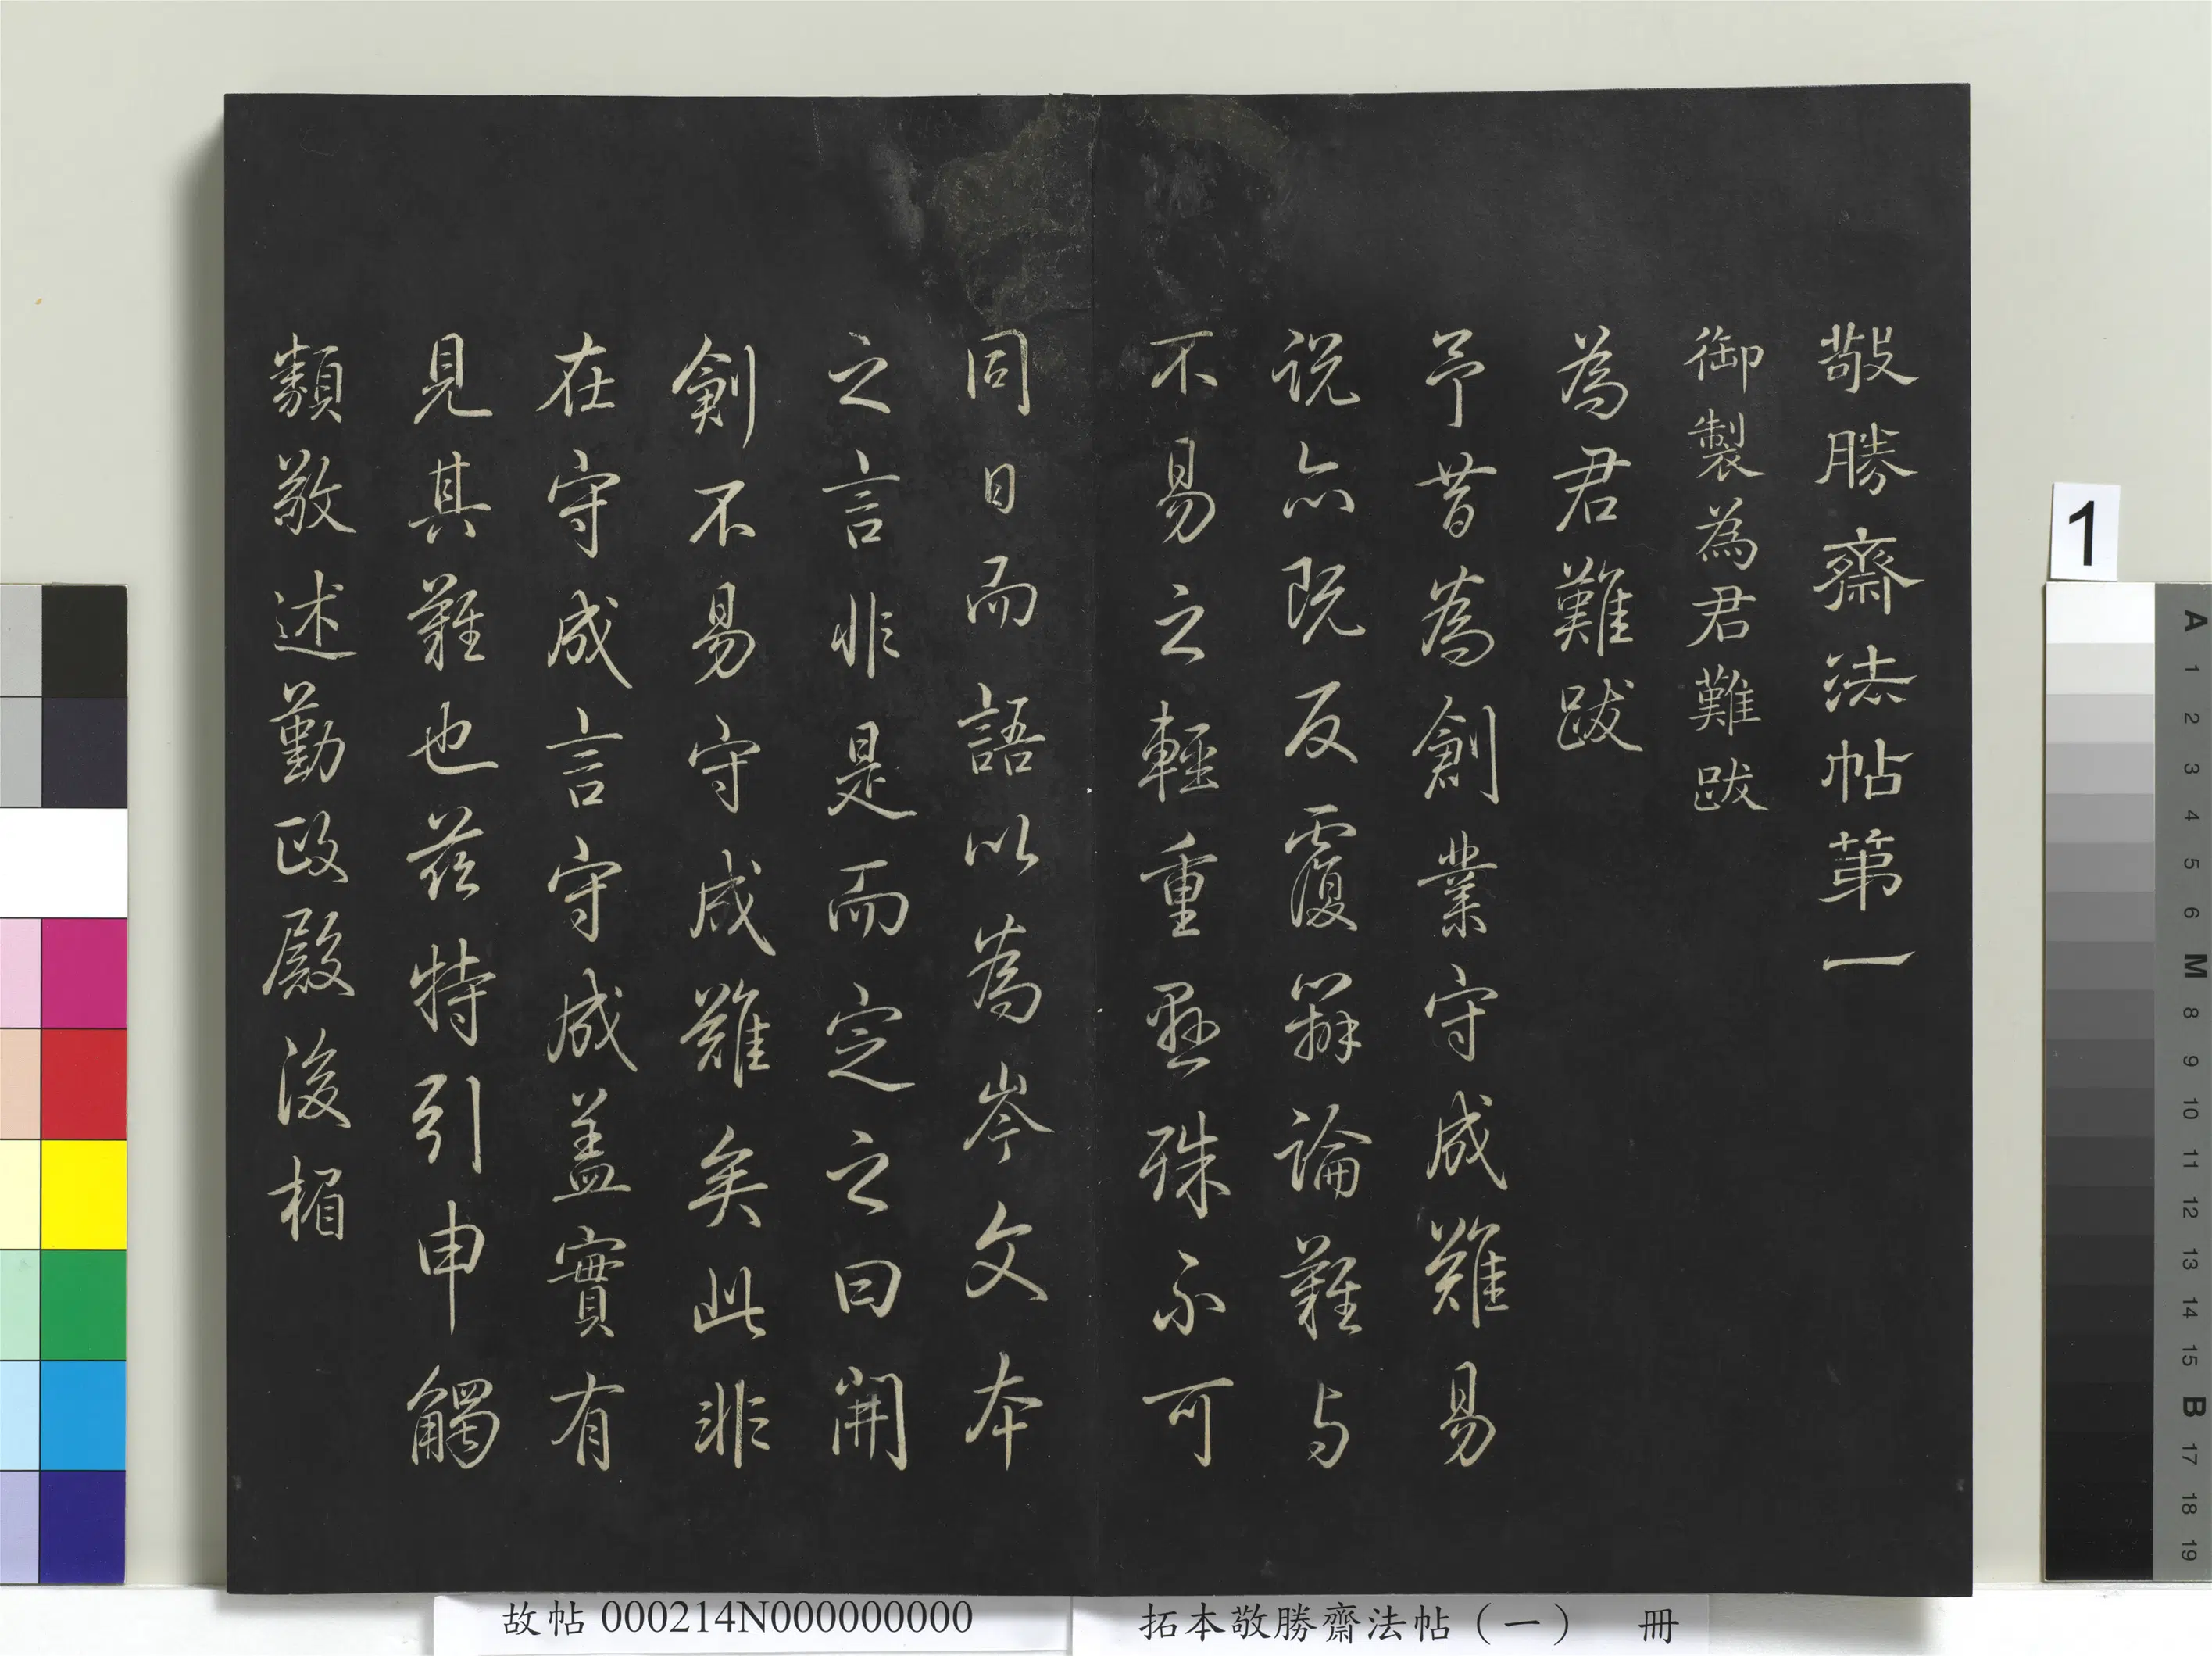 敬勝齋法帖第一
御製為君難跋
為君難跋
予昔為創業守成難易
説亦既反覆辯論難与
不易之輕重懸殊不可
同日而語以為岑文本
之言非是而定之曰開
創不易守成難矣此非
在守成言守成盖實有
見其難也茲特引申觸
類敬述勤政殿後楣
1
A 1 2 3 4 5 6 M 8 9 10 11 12 13 14 15 B 17 18 19
故帖 000214N000000000
拓本敬勝齋法帖（一） 冊